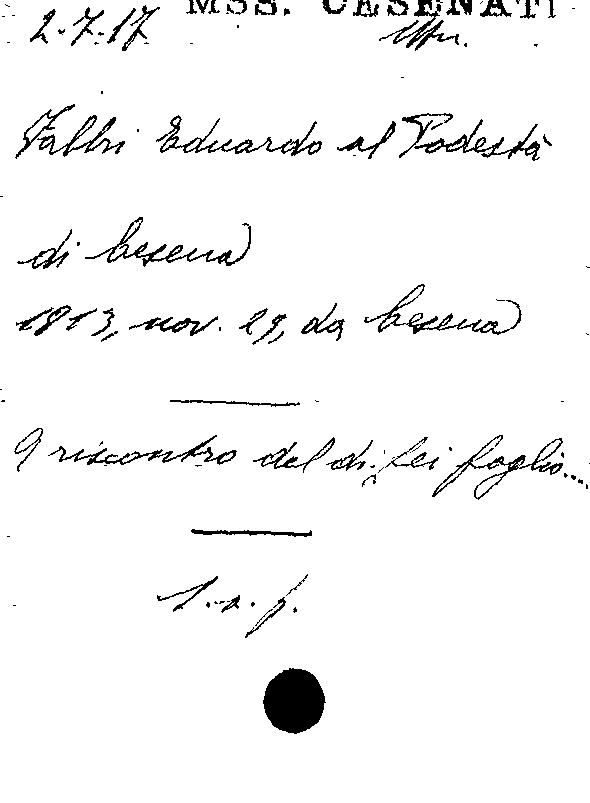 MSS. CESENATI
2.7.17
Fabbri Eduardo al Podestà
di Cesena
1813, nov. 29, da Cesena
A riscontro del di Lei foglio....
L.a.f.